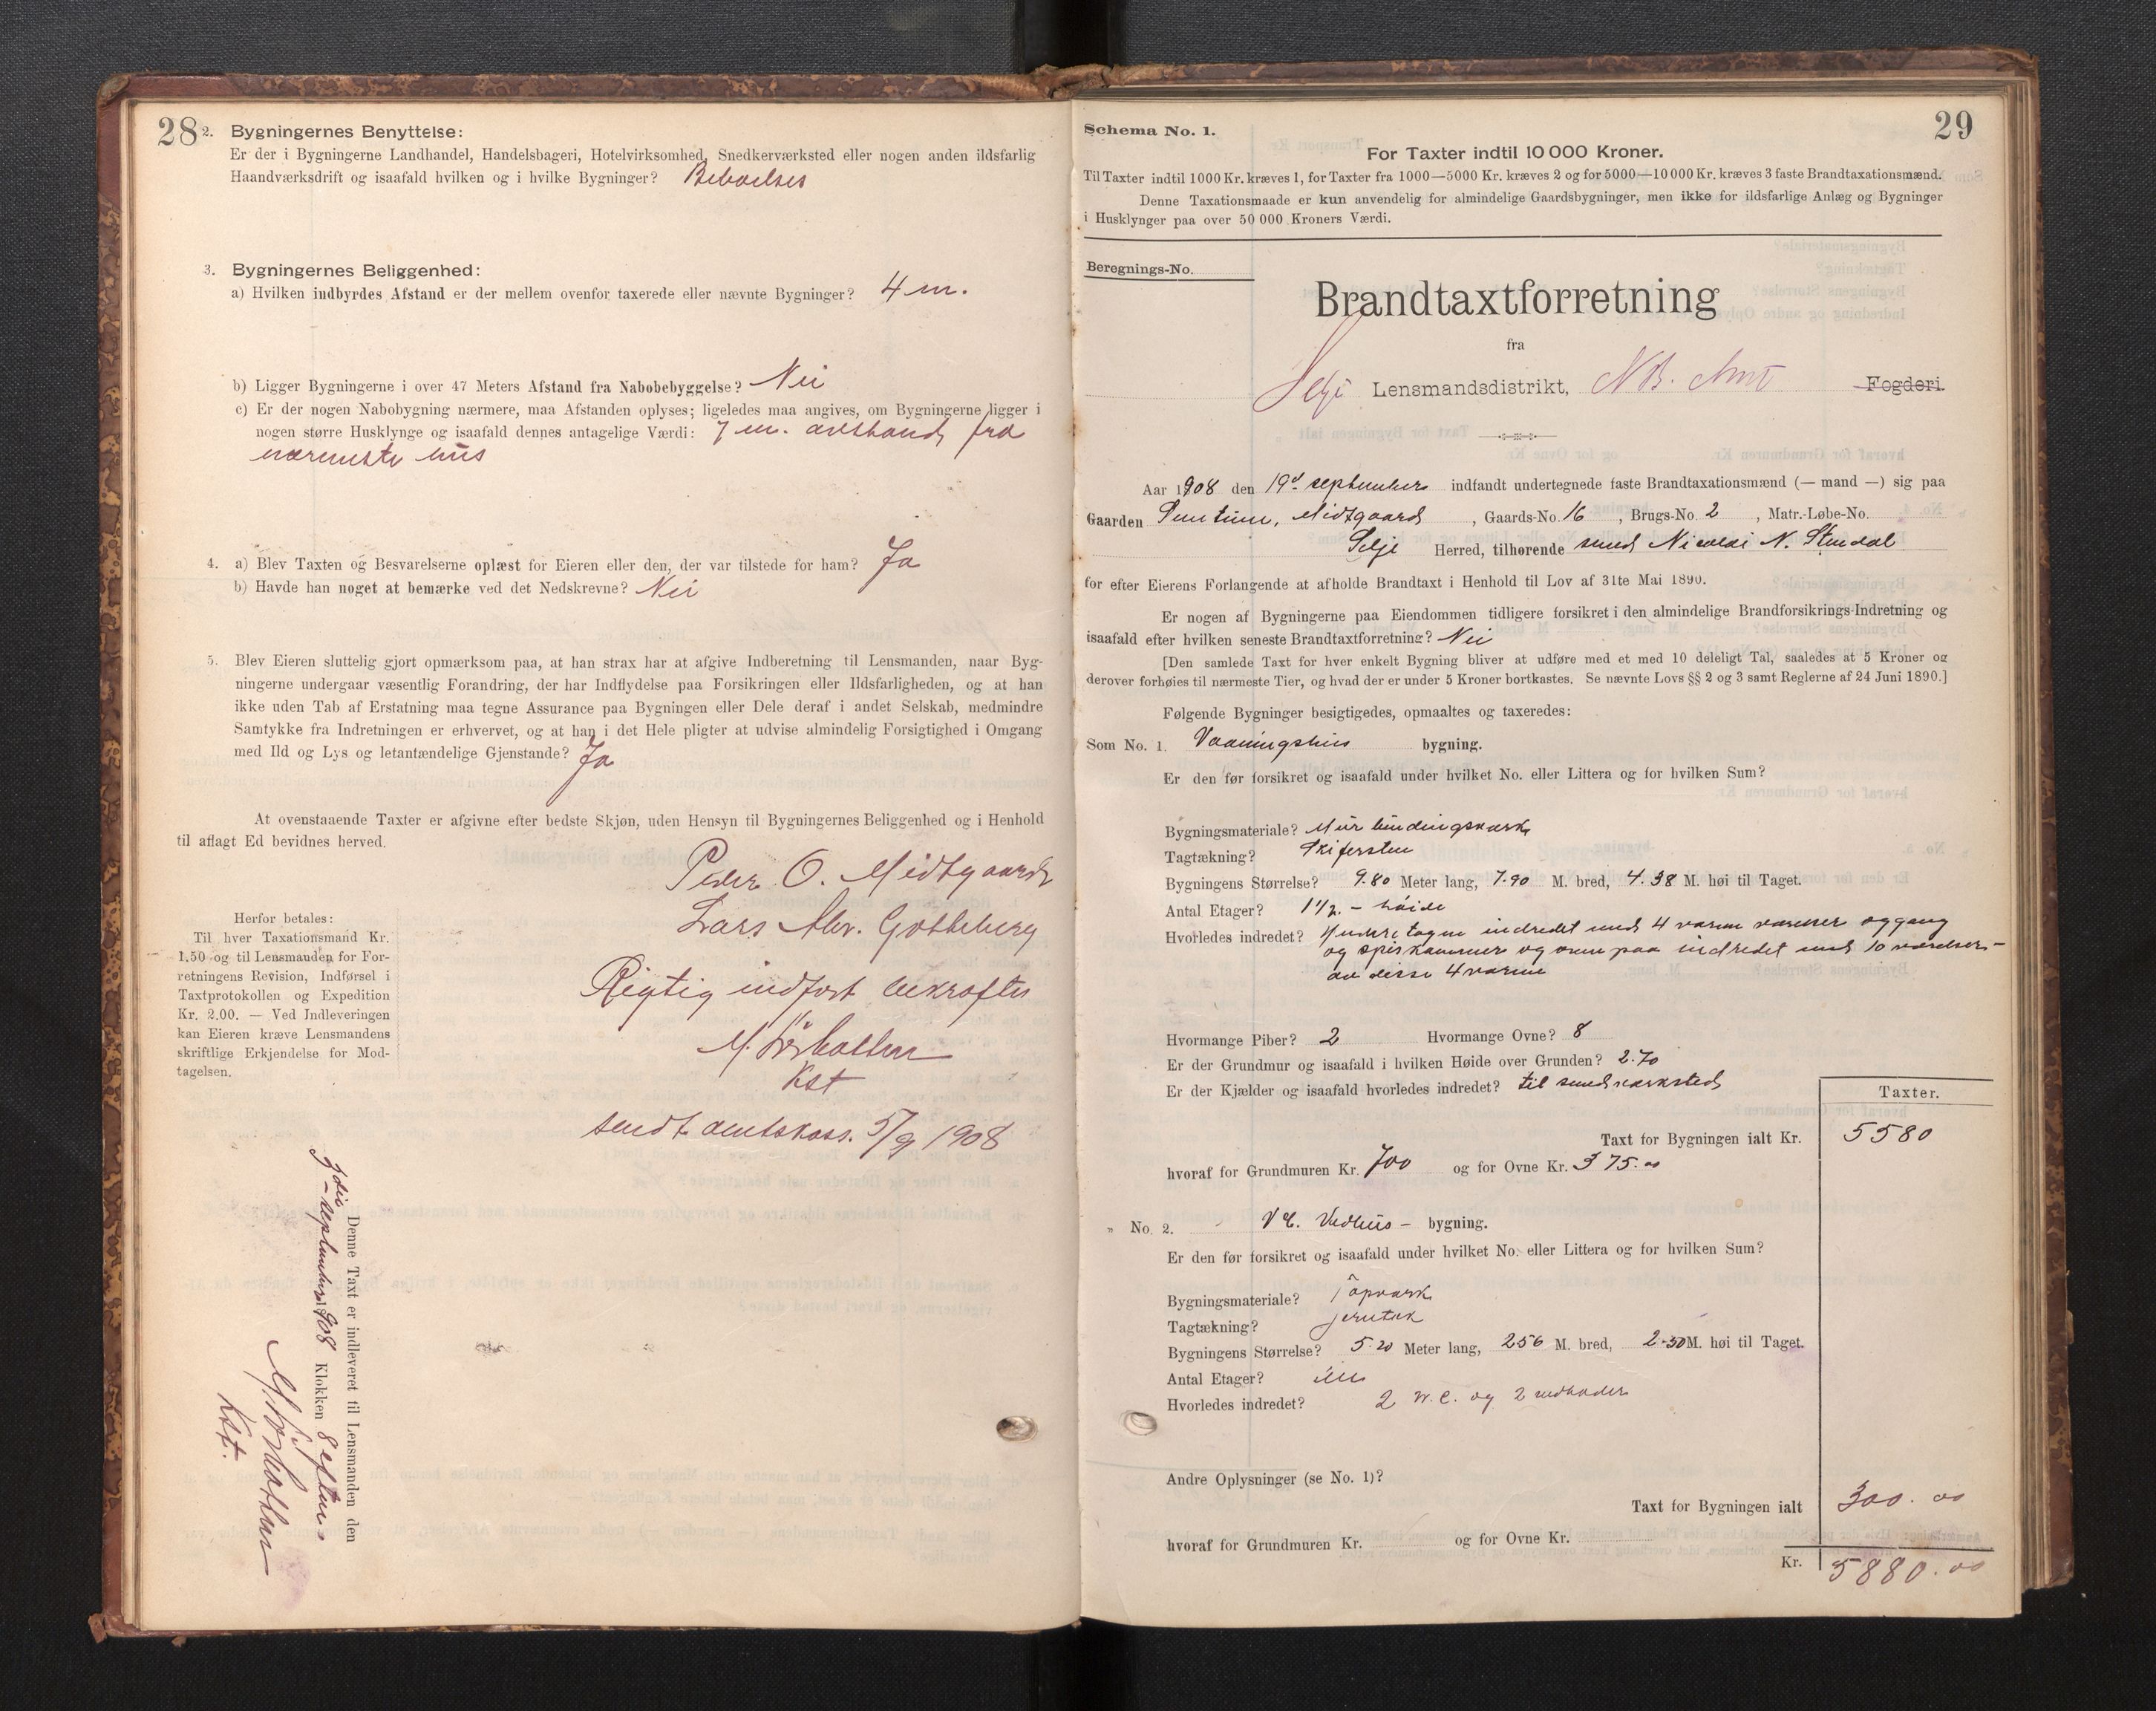 28
2. Bygningernes Benyttelse:
Er der i Bygningerne Landhandel, Handelsbageri, Hotelvirksomhed, Snedkerværksted eller nogen anden ildsfarlig
Haandværksdrift og isaafald hvilken og i hvilke Bygninger? Beboelses
3. Bygningernes Beliggenhed:
a) Hvilken indbyrdes Afstand er der mellem ovenfor taxerede eller nævnte Bygninger? 4 m.
b) Ligger Bygningerne i over 47 Meters Afstand fra Nabobebyggelse? Nei
c) Er der nogen Nabobygning nærmere, maa Afstanden oplyses; ligeledes maa angives, om Bygningerne ligger i
nogen større Husklynge og isaafald dennes antagelige Værdi: 7 m. avstand fra
nærmeste hus
4. a) Blev Taxten og Besvarelserne oplæst for Eieren eller den, der var tilstede for ham? Ja
b) Havde han noget at bemærke ved det Nedskrevne? Nei
5. Blev Eieren sluttelig gjort opmærksom paa, at han strax har at afgive Indberetning til Lensmanden, naar Byg-
ningerne undergaar væsentlig Forandring, der har Indflydelse paa Forsikringen eller Ildsfarligheden, og at han
ikke uden Tab af Erstatning maa tegne Assurance paa Bygningen eller Dele deraf i andet Selskab, medmindre
Samtykke fra Indretningen er erhvervet, og at han i det Hele pligter at udvise almindelig Forsigtighed i Omgang
med Ild og Lys og letantændelige Gjenstande? Ja
At ovenstaaende Taxter er afgivne efter bedste Skjøn, uden Hensyn til Bygningernes Beliggenhed og i Henhold
til aflagt Ed bevidnes herved.
Peder O. Midtgaard
Lars Abr. Gotteberg
Rigtig indført bekræftes
Kst
sendt amtskass. 5/9 1908
Herfor betales:
Til hver Taxationsmand Kr.
1,50 og til Lensmanden for For-
retningens Revision, Indførsel i
Taxtprotokollen og Expedition
Kr. 2.00. — Ved Indleveringen
kan Eieren kræve Lensmandens
skriftlige Erkjendelse for Mod-
tagelsen.
Denne Taxt er indleveret til Lensmanden den
september 1908 Klokken 8 eftm.
Kst.
29
Schema No. 1.
For Taxter indtil 10 000 Kroner.
Til Taxter indtil 1000 Kr. kræves 1, for Taxter fra 1000—5000 Kr. kræves 2 og for 5000—10 000 Kr. kræves 3 faste Brandtaxationsmænd.
Denne Taxationsmaade er kun anvendelig for almindelige Gaardsbygninger, men ikke for ildsfarlige Anlæg og Bygninger
i Husklynger paa over 50 000 Kroners Værdi.
Beregnings-No.
Brandtaxtforretning
fra
Selje Lensmandsdistrikt, N. B. Amt Fogderi
Aar 1908 den 19d september indfandt undertegnede faste Brandtaxationsmænd (— mand —) sig paa
Gaarden Midtgaard, Gaards-No. 16, Brugs-No. 2, Matr.-Løbe-No.
Selje Herred, tilhørende smed Nicolai N. Stendal
for efter Eierens Forlangende at afholde Brandtaxt i Henhold til Lov af 31te Mai 1890.
Er nogen af Bygningerne paa Eiendommen tidligere forsikret i den almindelige Brandforsikrings-Indretning og
isaafald efter hvilken seneste Brandtaxtforretning? Nei
[Den samlede Taxt for hver enkelt Bygning bliver at udføre med et med 10 deleligt Tal, saaledes at 5 Kroner og
derover forhøies til nærmeste Tier, og hvad der er under 5 Kroner bortkastes. Se nævnte Lovs §§ 2 og 3 samt Reglerne af 24 Juni 1890.]
Følgende Bygninger besigtigedes, opmaaltes og taxeredes:
Som No. 1. Vaaningshus bygning.
Er den før forsikret og isaafald under hvilket No. eller Littera og for hvilken Sum?
Bygningsmateriale? Mur bindingsværk
Tagtækning? Skifersten
Bygningens Størrelse? 9.80 Meter lang, 7.90 M. bred, 4.38 M. høi til Taget.
Antal Etager? 1½ - høide
Hvorledes indredet? indredet med 4 varme værelser og gang
og spiskammer og oven paa indredet med 10 værelser -
av disse 4 varme
Hvormange Piber? 2 Hvormange Ovne? 8
Er der Grundmur og isaafald i hvilken Høide over Grunden? 2.70
Er der Kjælder og isaafald hvorledes indredet? til smedværksted
Taxter.
Taxt for Bygningen ialt Kr. 5580
hvoraf for Grundmuren Kr. 700 og for Ovne Kr. 375.00
" No. 2. V c. Vedhus - bygning.
Er den før forsikret og isaafald under hvilket No. eller Littera og for hvilken Sum?
Bygningsmateriale?
Tagtækning? jerntak
Bygningens Størrelse? 5.20 Meter lang, 256 M. bred, 2.50 M. høi til Taget.
Antal Etager? en
Hvorledes indredet? 2 W.C. og 2 vedboder
Andre Oplysninger (se No. 1)?
Taxt for Bygningen ialt 300.00
hvoraf for Grundmuren Kr. og for Ovne Kr.
Kr. 5880.00